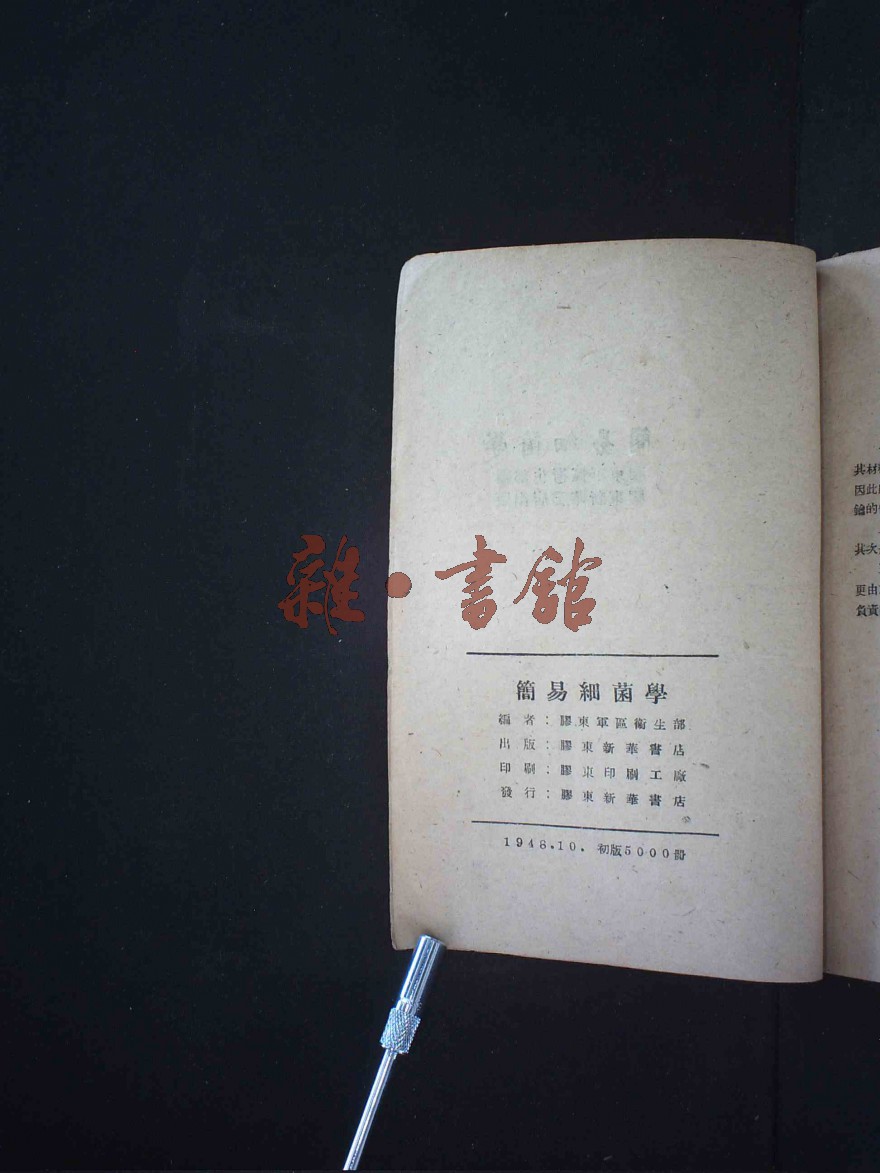 雜·書館
簡易細菌學
編者：膠東軍區衛生部
出版：膠東新華書店
印刷：膠東印刷工廠
發行：膠東新華書店
1948.10. 初版5000冊
其材
因此
鑰的
其次
更由
負責